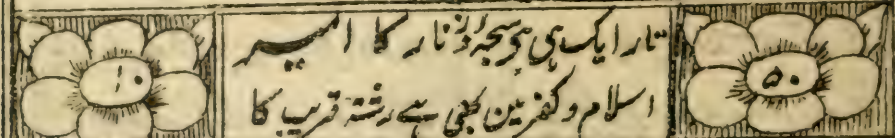 ۵۰
تار ایک ہی ہے سبحہ و زنار کا امیر
اسلام و کفر مین بھی ہے رشتہ قریب کا
۱۰